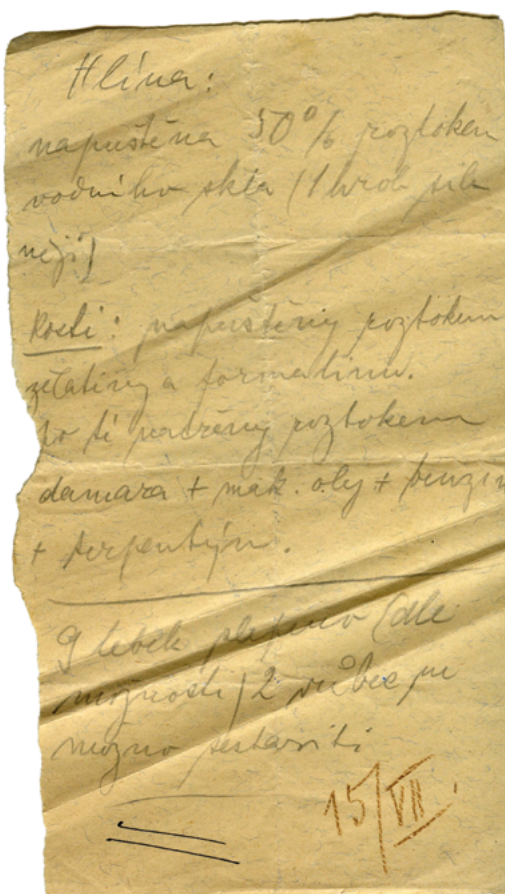 Hlína:
napuštěna 50% roztokem
vodního skla (1 hrob sil
nější)
Kosti: napuštěny roztokem
želatiny a formalinu.
po té natřeny roztokem
damara + mak. olej + benzin
+ terpentýn.
9 lebek slepeno (dle
možnosti) 2 vůbec ne
možno sestaviti
15/VII.